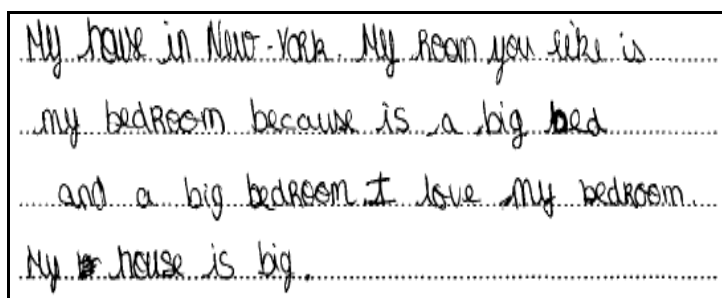 My house in New-York. My Room you like is
my bedroom because is a big bed
and a big bedroom. I love my bedroom.
My house is big.